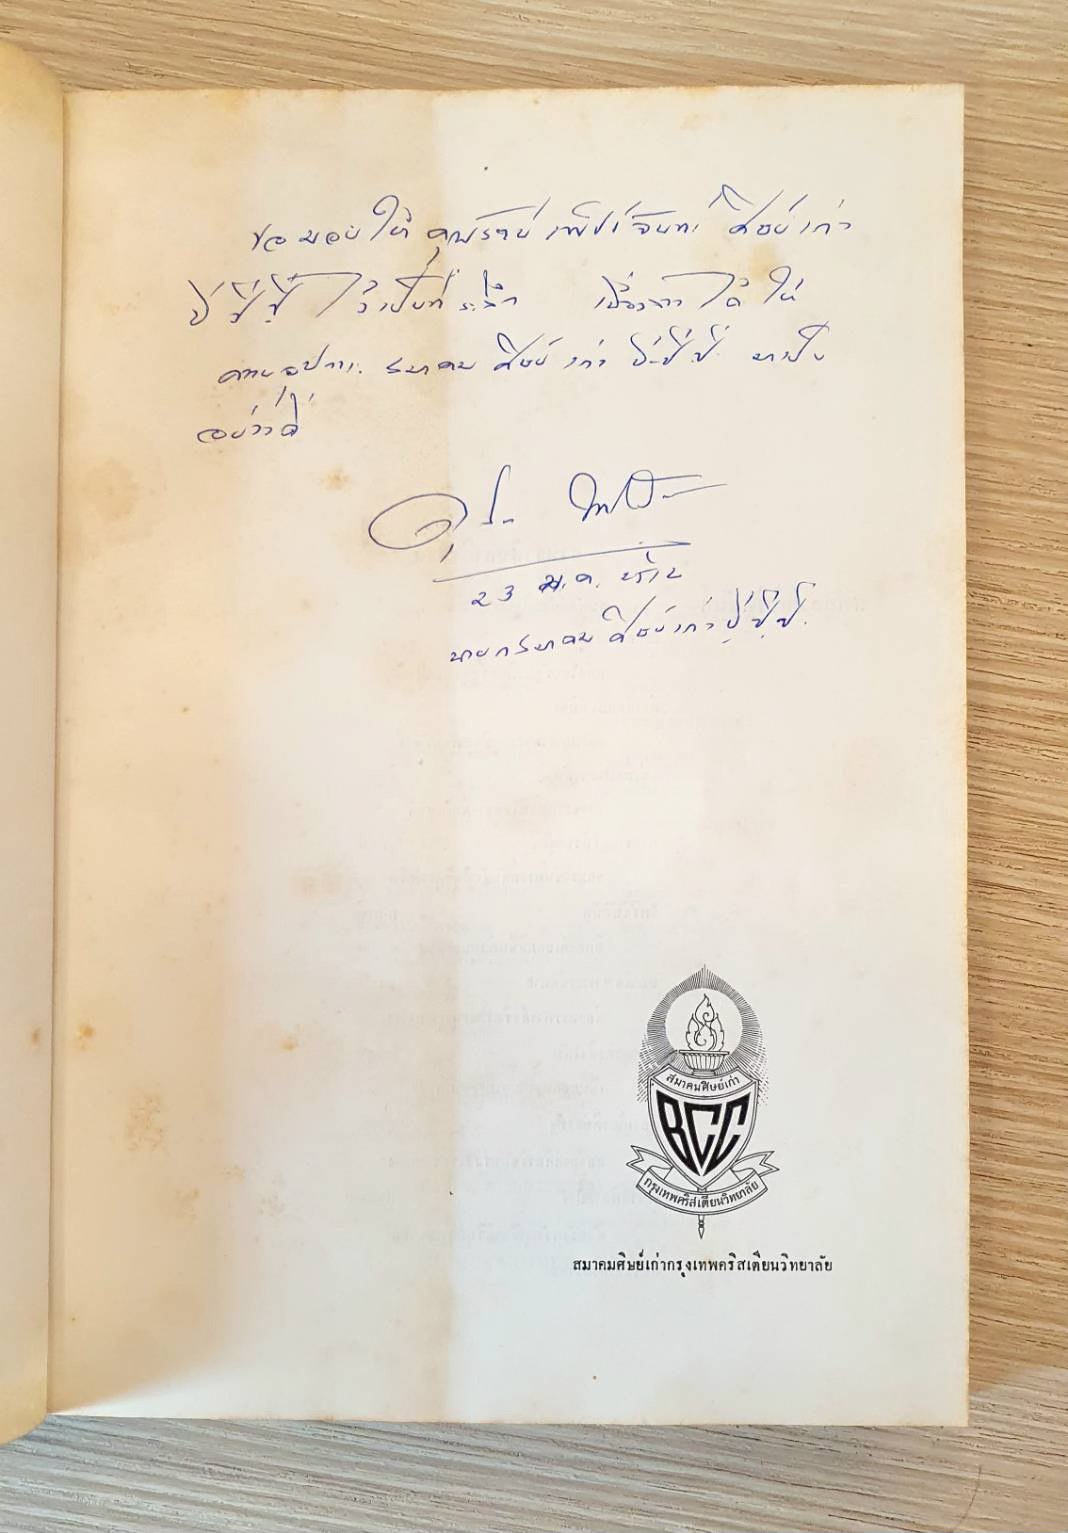 ขอมอบให้ คุณ เพ็ชร์จันทร์ ศิษย์เก่า
บีซีซี ไว้เป็นที่ระลึก เนื่องจากได้ให้
ความอุปการะสมาคมศิษย์เก่า บีซีซี มาเป็น
อย่างดี
23 ม.ค.
นายกสมาคมศิษย์เก่า บีซีซี.
สมาคมศิษย์เก่า
BCC
กรุงเทพคริสเตียนวิทยาลัย
สมาคมศิษย์เก่ากรุงเทพคริสเตียนวิทยาลัย